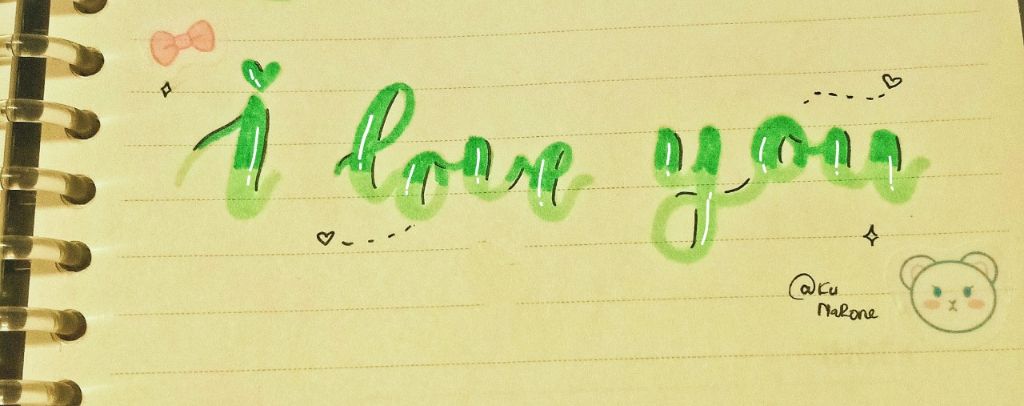 i love you
@Ku
MaRone